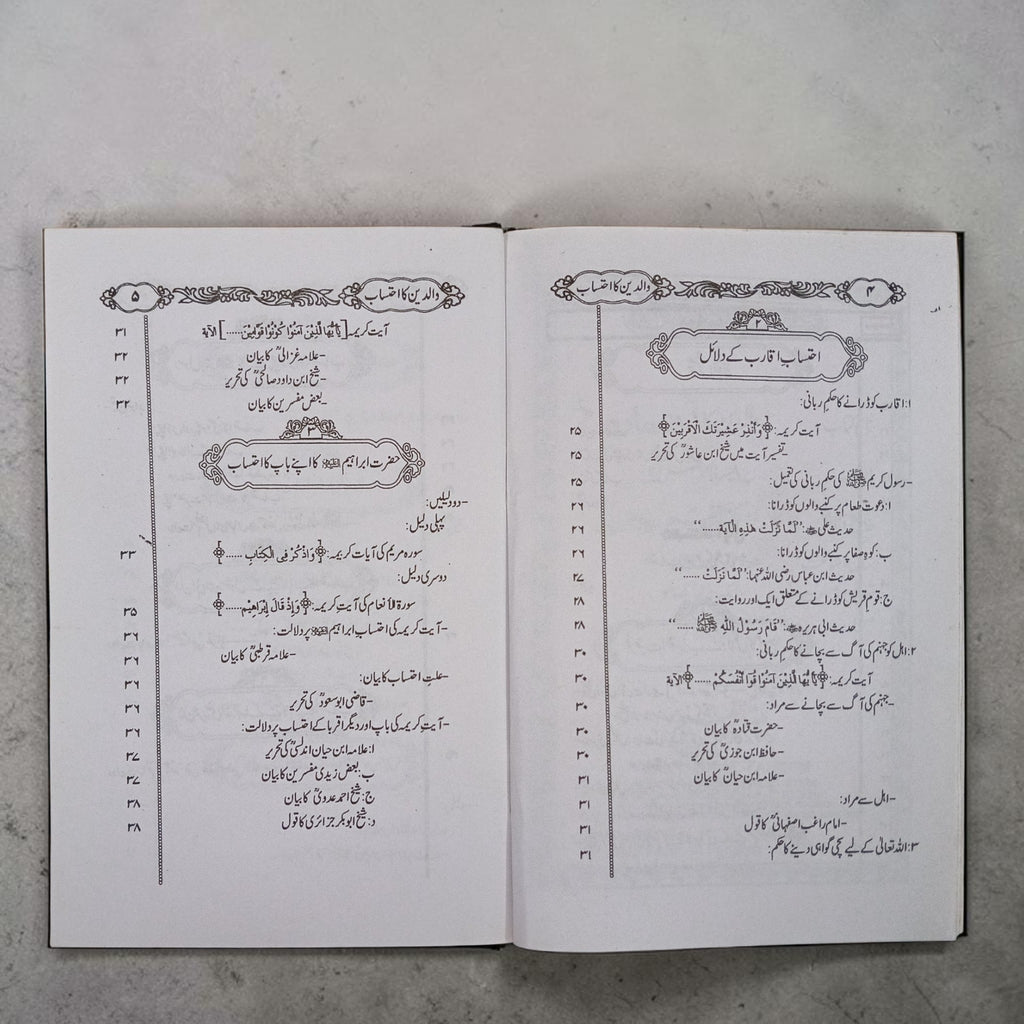 ۴ والدین کا احتساب
۲
احتسابِ اقارب کے دلائل
۱: اقارب کو ڈرانے کا حکمِ ربانی:
آیت کریمہ: ﴿وَأَنْذِرْ عَشِيْرَتَكَ الْأَقْرَبِيْنَ﴾ ۲۵
-تفسیر آیت میں شیخ ابن عاشورؒ کی تحریر ۲۵
-رسول کریم ﷺ کی حکمِ ربانی کی تعمیل: ۲۵
ا: دعوتِ طعام پر کنبے والوں کو ڈرانا: ۲۶
حدیث علی ؓ: ’’لَمَّا نَزَلَتْ هٰذِهِ الْآيَة......‘‘ ۲۶
ب: کوہِ صفا پر کنبے والوں کو ڈرانا: ۲۶
حدیث ابن عباس رضی اللہ عنہما: ’’لَمَّا نَزَلَتْ ......‘‘ ۲۷
ج: قوم قریش کو ڈرانے کے متعلق ایک اور روایت: ۲۸
حدیث ابی ہریرہ ؓ: ’’قَامَ رَسُوْلُ اللّٰهِ ﷺ ......‘‘ ۲۸
۲: اہل کو جہنم کی آگ سے بچانے کا حکمِ ربانی: ۳۰
آیت کریمہ: ﴿يٰأَيُّهَا الَّذِيْنَ آمَنُوْا قُوْا أَنْفُسَكُمْ ......﴾ الآیۃ ۳۰
-جہنم کی آگ سے بچانے سے مراد: ۳۰
-حضرت قتادہؒ کا بیان ۳۰
-حافظ ابن جوزیؒ کی تحریر ۳۰
-علامہ ابن حیانؒ کا بیان ۳۱
-اہل سے مراد: ۳۱
-امام راغب اصفہانیؒ کا قول ۳۱
۳: اللہ تعالیٰ کے لیے سچی گواہی دینے کا حکم: ۳۱
والدین کا احتساب ۵
آیت کریمہ: [يٰأَيُّهَا الَّذِيْنَ آمَنُوْا كُوْنُوْا قَوَّامِيْنَ......] الآیۃ ۳۱
-علامہ غزالیؒ کا بیان ۳۲
-شیخ ابن داود صالحیؒ کی تحریر ۳۲
-بعض مفسرین کا بیان ۳۲
۳
حضرت ابراہیم علیہ السلام کا اپنے باپ کا احتساب
-دو دلیلیں:
پہلی دلیل:
سورہ مریم کی آیات کریمہ: ﴿وَاذْكُرْ فِي الْكِتَابِ ......﴾ ۳۳
دوسری دلیل:
سورۃ الأنعام کی آیتِ کریمہ: ﴿وَإِذْ قَالَ إِبْرَاهِيْمُ......﴾ ۳۵
-آیت کریمہ کی احتسابِ ابراہیم علیہ السلام پر دلالت: ۳۶
-علامہ قرطبیؒ کا بیان ۳۶
-علتِ احتساب کا بیان: ۳۶
-قاضی ابوسعودؒ کی تحریر ۳۶
-آیتِ کریمہ کی باپ اور دیگر اقربا کے احتساب پر دلالت: ۳۶
ا: علامہ ابن حیان اندلسیؒ کی تحریر ۳۷
ب: بعض زیدی مفسرین کا بیان ۳۷
ج: شیخ احمد عدویؒ کا بیان ۳۸
د: شیخ ابوبکر جزائری کا قول ۳۸